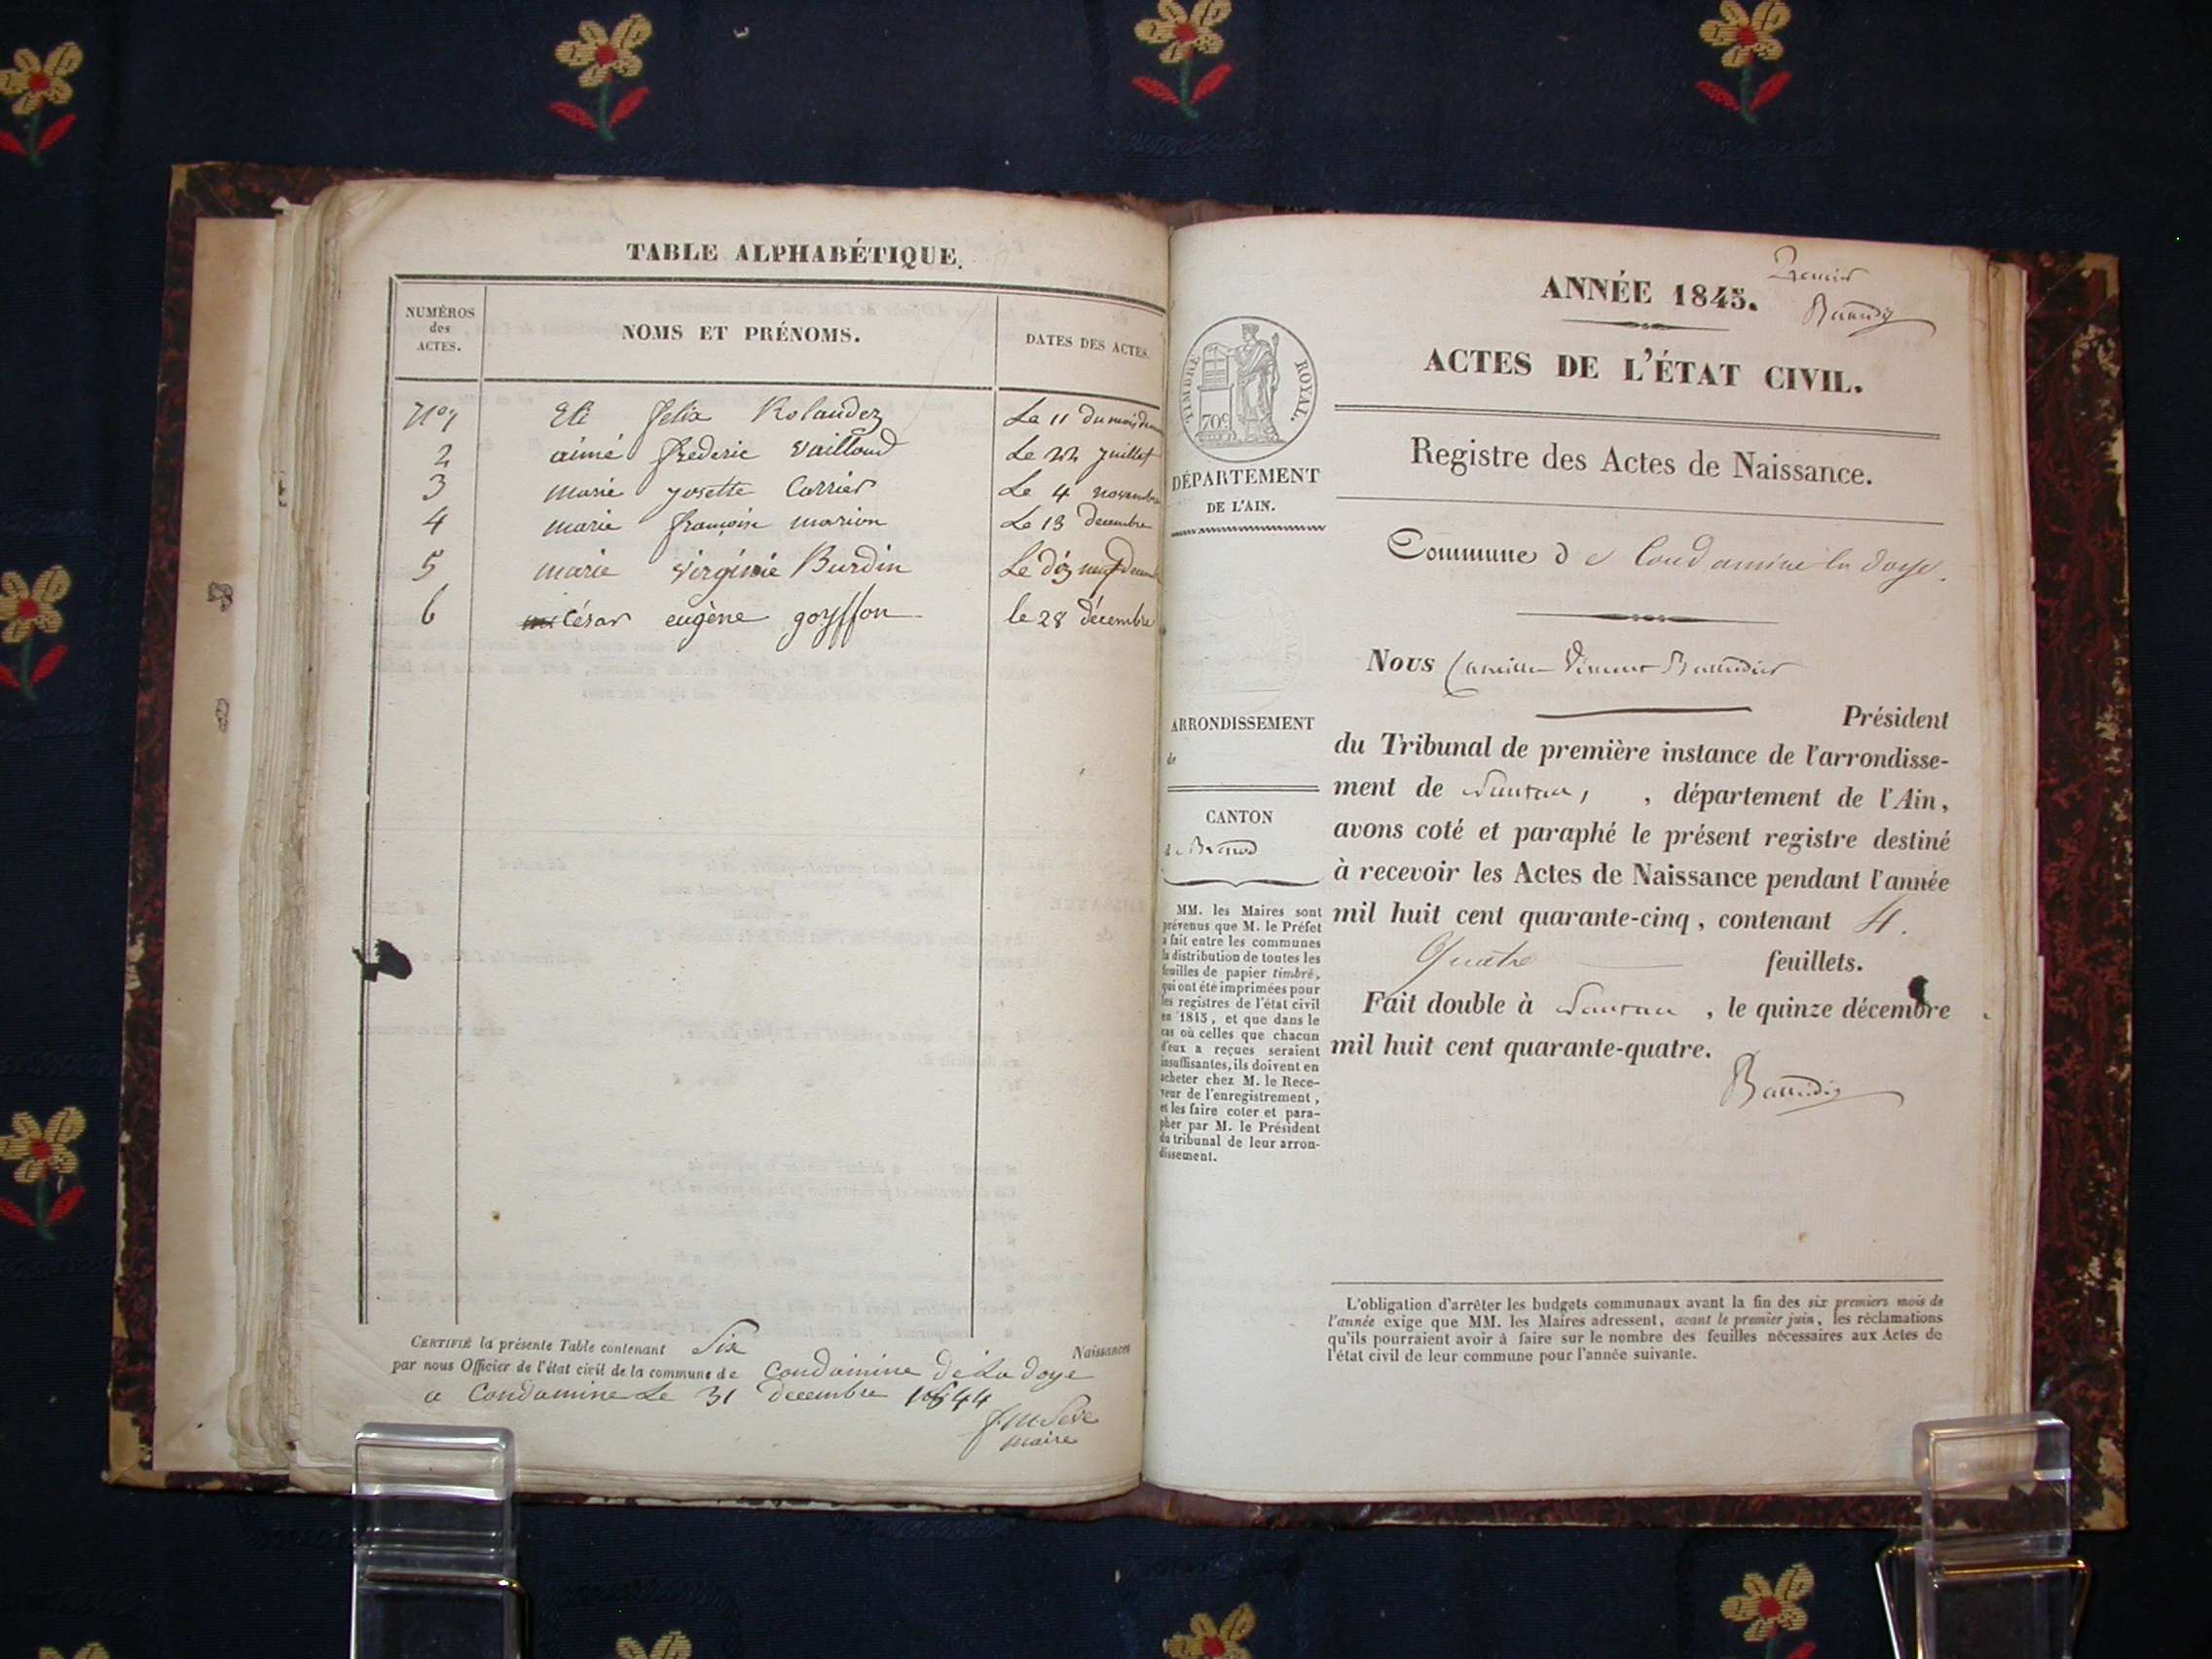 TABLE ALPHABÉTIQUE.
NUMÉROS
des
ACTES.
NOMS ET PRÉNOMS.
DATES DES ACTES.
N° 1 felix Rolandez Le 11 du mois
2 aimé frederic vailloud Le 22 juillet
3 marie josette Carrier Le 4 novembre
4 marie françoise marion Le 13 decembre
5 marie virginie Burdin Le diz neuf decembre
6 César eugène goyffon le 28 décembre
CERTIFIÉ la présente Table contenant Six Naissances
par nous Officier de l'état civil de la commune de Condamine de La doye
a Condamine Le 31 decembre 1844
maire
Premier
ANNÉE 1845.
ACTES DE L'ÉTAT CIVIL.
TIMBRE ROYAL.
70c
DÉPARTEMENT
DE L'AIN.
Registre des Actes de Naissance.
Commune de Condamine la doye.
ARRONDISSEMENT
de
CANTON
de Brenod
MM. les Maires sont
prévenus que M. le Préfet
a fait entre les communes
la distribution de toutes les
feuilles de papier timbré,
qui ont été imprimées pour
les registres de l'état civil
en 1845, et que dans le
cas où celles que chacun
d'eux a reçues seraient
insuffisantes, ils doivent en
acheter chez M. le Rece-
veur de l'enregistrement,
et les faire coter et para-
pher par M. le Président
du tribunal de leur arron-
dissement.
Nous Camille Vincent Baudier
Président
du Tribunal de première instance de l'arrondisse-
ment de Nantua, , département de l'Ain,
avons coté et paraphé le présent registre destiné
à recevoir les Actes de Naissance pendant l'année
mil huit cent quarante-cinq, contenant 4.
Quatre feuillets.
Fait double à Nantua, le quinze décembre
mil huit cent quarante-quatre.
L'obligation d'arrêter les budgets communaux avant la fin des six premiers mois de
l'année exige que MM. les Maires adressent, avant le premier juin, les réclamations
qu'ils pourraient avoir à faire sur le nombre des feuilles nécessaires aux Actes de
l'état civil de leur commune pour l'année suivante.